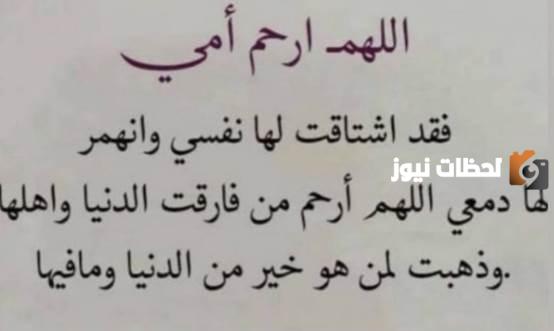 اللهم ارحم أمي
فقد اشتاقت لها نفسي وانهمر
لحظات نيوز
لها دمعي اللهم أرحم من فارقت الدنيا واهلها
وذهبت لمن هو خير من الدنيا ومافيها.